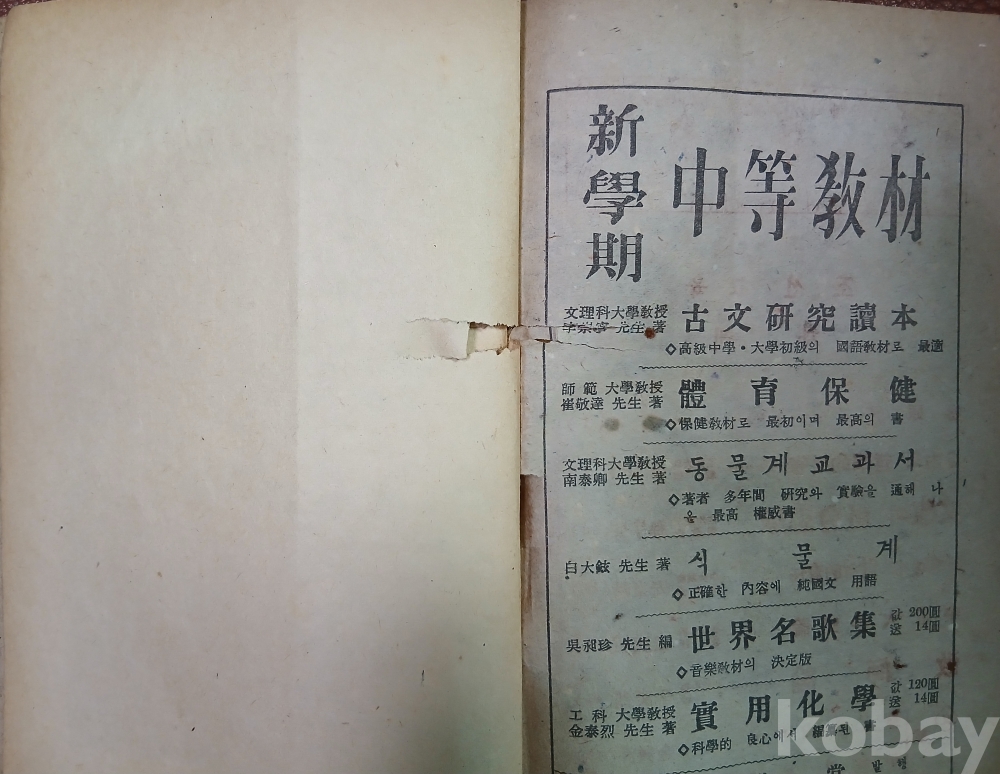 新學期
中等敎材
文理科大學敎授
先生 著
古文硏究讀本
◇高級中學・大學初級의 國語敎材로 最適
師範 大學敎授
崔敬達 先生 著
體育保健
◇保健敎材로 最初이며 最高의 書
文理科大學敎授
南泰卿 先生 著
동물계교과서
◇著者 多年間 硏究와 實驗을 通해 나
온 最高 權威書
白大鉉 先生 著
식물계
◇正確한 內容에 純國文 用語
吳昶珍 先生 編
世界名歌集
값 200圓
送 14圓
◇音樂敎材의 決定版
工科 大學敎授
金泰烈 先生 著
實用化學
값 120圓
送 14圓
◇科學的 良心에서 編纂된 書
kobay